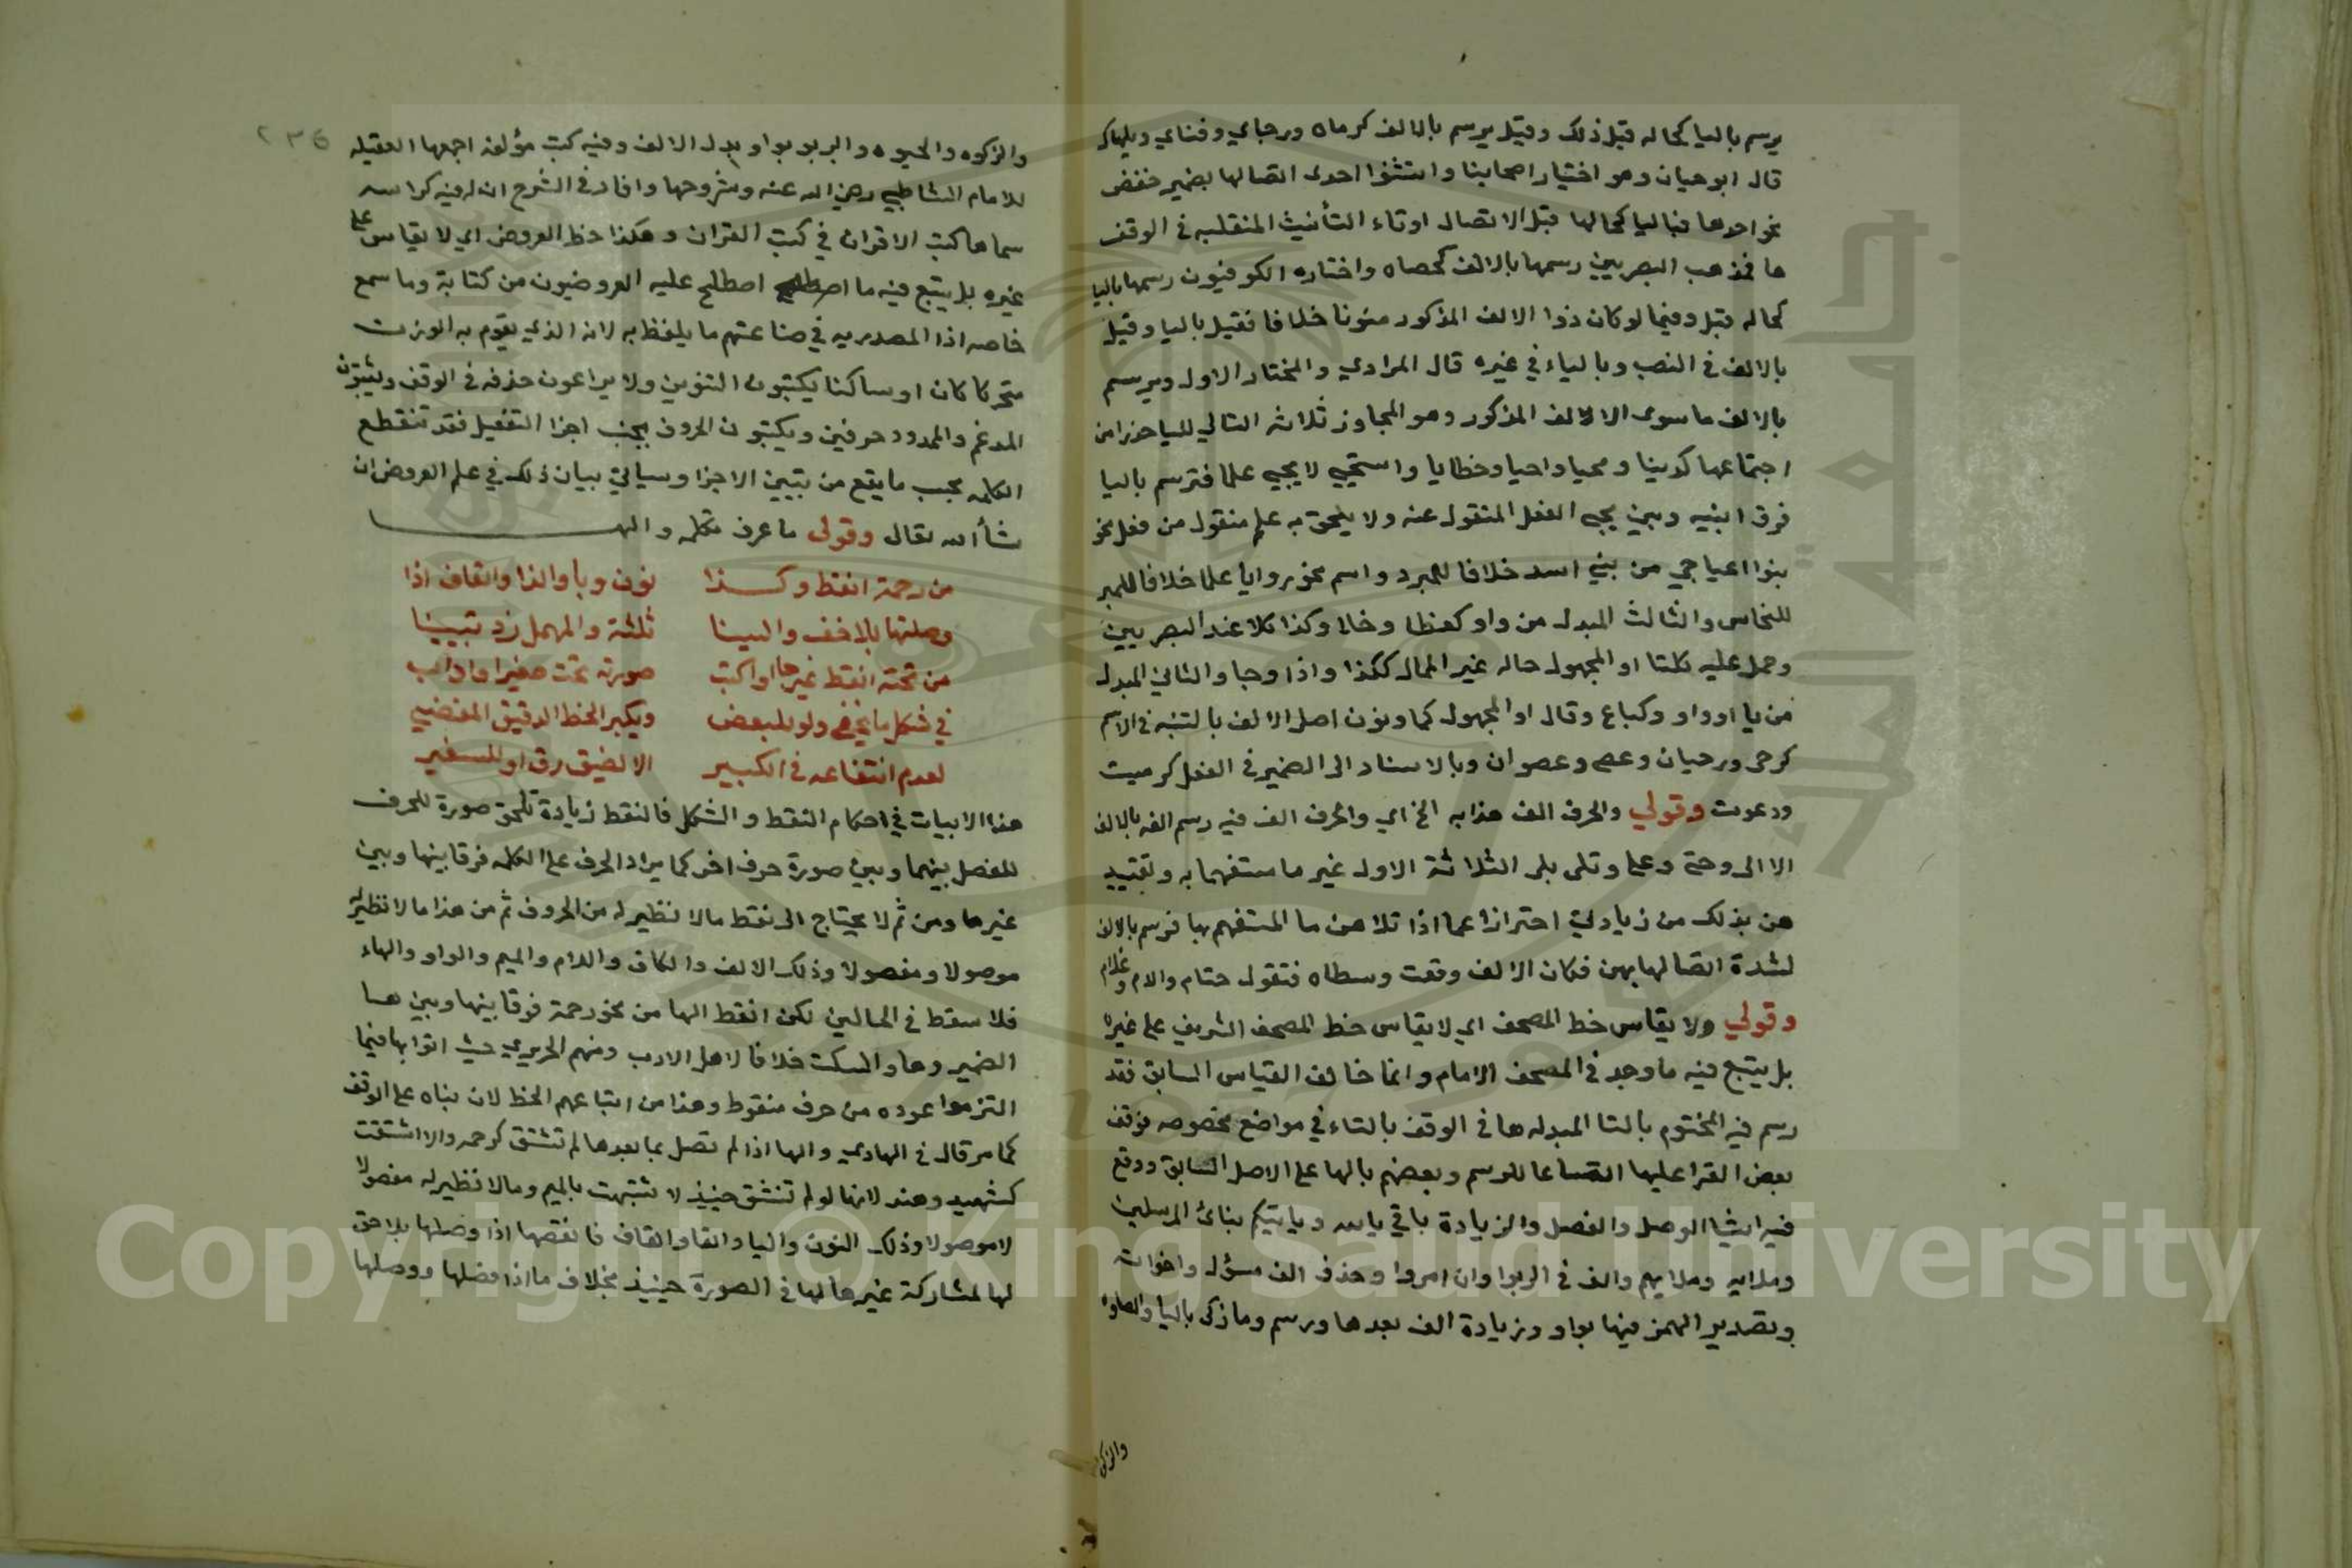 يرسم باليا كحاله قبل ذلك وقيل يرسم بالالف كرماه ورجاي وفناي ويليهاك
قال ابو حيان وهو اختيار اصحابنا واستثنوا احدى اتصالها بضمير خفض
نحو احدها فباليا كحالها قبل الاتصال او تاء التأنيث المنقلبه في الوقف
ها فمذهب البصريين رسمها بالالف كحصاه واختاره الكوفيون رسمها باليا
كحاله قبل وفيما لو كان ذوا الالف المذكور منونا خلافا فقيل باليا وقيل
بالالف في النصب وبالياء في غيره قال المرادي والمختار الاول ويرسم
بالالف ما سوى الالالف المذكور وهو المجاوز ثلاثه التالي لليا حذرا من
اجتماعهما كدنيا ومحيا واحيا وخطايا واستحيي لا يحيي علما فترسم باليا
فرقا بينه وبين يحيى الفعل المنقول عنه ولا يلحق به علم منقول من فعل نحو
بنوا اعيا حي من بني اسد خلافا للمبرد واسم نحو روايا علما خلافا للمبر
للنحاس والثالث المبدل من واو كعطا وخلا وكذا كلا عند البصريين
وحمل عليه كلتا او المجهول حاله غير الممال ككذا واذا وحبا والثاني المبدل
من يا او واو وكباع وقال او المجهول كما ونون اصل الالف بالتنبه في الاسم
كرحى ورحيان وعصى وعصوان وبالاسناد الى الضمير في الفعل كرميت
ودعوت وقولي والحرف الف هذا به الخ اي والحرف الف فيه رسم الفه بالالف
الا الى وحتى وعلى وتلى بلى الثلاثة الاول غير ما مستفهما به وتقييد
هن بذلك من زيادتي احترازا عما اذا تلا هن ما المستفهم بها فرسم بالالف
لشدة اتصالها بهن فكان الالف وقعت وسطاه فتقول حتام والام وعلام
وقولي ولا يقاس خط المصحف اي لا يقاس خط المصحف الشريف على غيره
بل يتبع فيه ما وجد في المصحف الامام وانما خالف القياس السابق فقد
رسم فيه المختوم بالتا المبدله ها في الوقف بالتاء في مواضع مخصوصه فوقف
بعض القرا عليها اتساعا للرسم وبعضهم بالها على الاصل السابق ووقع
فيه ايضا الوصل والفصل والزيادة باقي باييد وباييكم بنائ المرسلين
وملائيه وملائيهم والف في الربوا وان امروا وحذف الف مسؤل واخواته
وتصدير الهمز فيها بواو وزيادة الف بعدها ورسم وما زكى باليا والصلوا
والزكو
٢٣٦
والزكوه والحيوه والبربو بواو بدل الالف وفيه كتب مؤلفه اجمعها العقيله
للامام الشاطبي رضي الله عنه وشروحها وافاد في الشرح ان له فيه كراسه
سماها كبت الاقران في كتب القران وهكذا خط العروض اي لا يقاس على
غيره بل يتبع فيه ما اصطلح عليه العروضيون من كتابة وما سمع
خاصه اذا المعتد به في صناعتهم ما يلفظ به لانه الذي يقوم به الوزن
متحركا كان او ساكنا يكتبون التنوين ولا يراعون حذفه في الوقف ويثبتون
المدغم والممدود حرفين ويكتبون الحروف بحسب اجزا التفعيل فقد تنقطع
الكلمه بحسب ما يقع من تبيين الاجزا وسياتي بيان ذلك في علم العروض ان
شاء الله تعالى وقولى ما عرف تكلم والهـــا
من رحمة انقط وكـــذا نون وبا والذا والقاف اذا
وصلتها بلاخف والسينا ثلثة والمهمل زد تبيينا
من تحته انقط غيرحا او اكتب صورته تحت صغيرا وادأب
في شكل ما يخفى ولو للبعض ويكبر الخط الدقيق المفضي
لعدم انتفاعه في الكبير الا لضيق رق او للسفير
هذه الابيات في احكام النقط والشكل فالنقط زيادة تلحق صورة للحرف
للفصل بينهما وبين صورة حرف اخر كما يراد الحرف على الكلمه فرقا بينها وبين
غيرها ومن ثم لا يحتاج الى نقط مالا نظير له من الحروف ثم من هذا مالا نظير له
موصولا ومفصولا وذلك الالف والكاف واللام والميم والواو والهاء
فلا سقط في الحالين لكن انقط الها من نحو رحمة فرقا بينها وبين هـا
الضمير وها والسكت خلافا لاهل الادب ومنهم الحريري حيث اتوا بها فيما
التزموا عوده من حرف منقوط وهذا من اتباعهم الخط لان بناه على الوقف
كما مر قال في الهادي والها اذا لم تصل بما بعدها لم تشتق كرحمه والا اشتقت
كشهيد وهند لانها لو لم تنشق حينيذ لاشتبهت بالميم ومالا نظير له مفصولا
لا موصولا وذلك النون واليا والفا والقاف فانقطها اذا وصلها بلاحق
لها لمشاركة غيرها لها في الصورة حينيذ بخلاف ما اذا فصلها ووصلها
Copyright © King Saud University